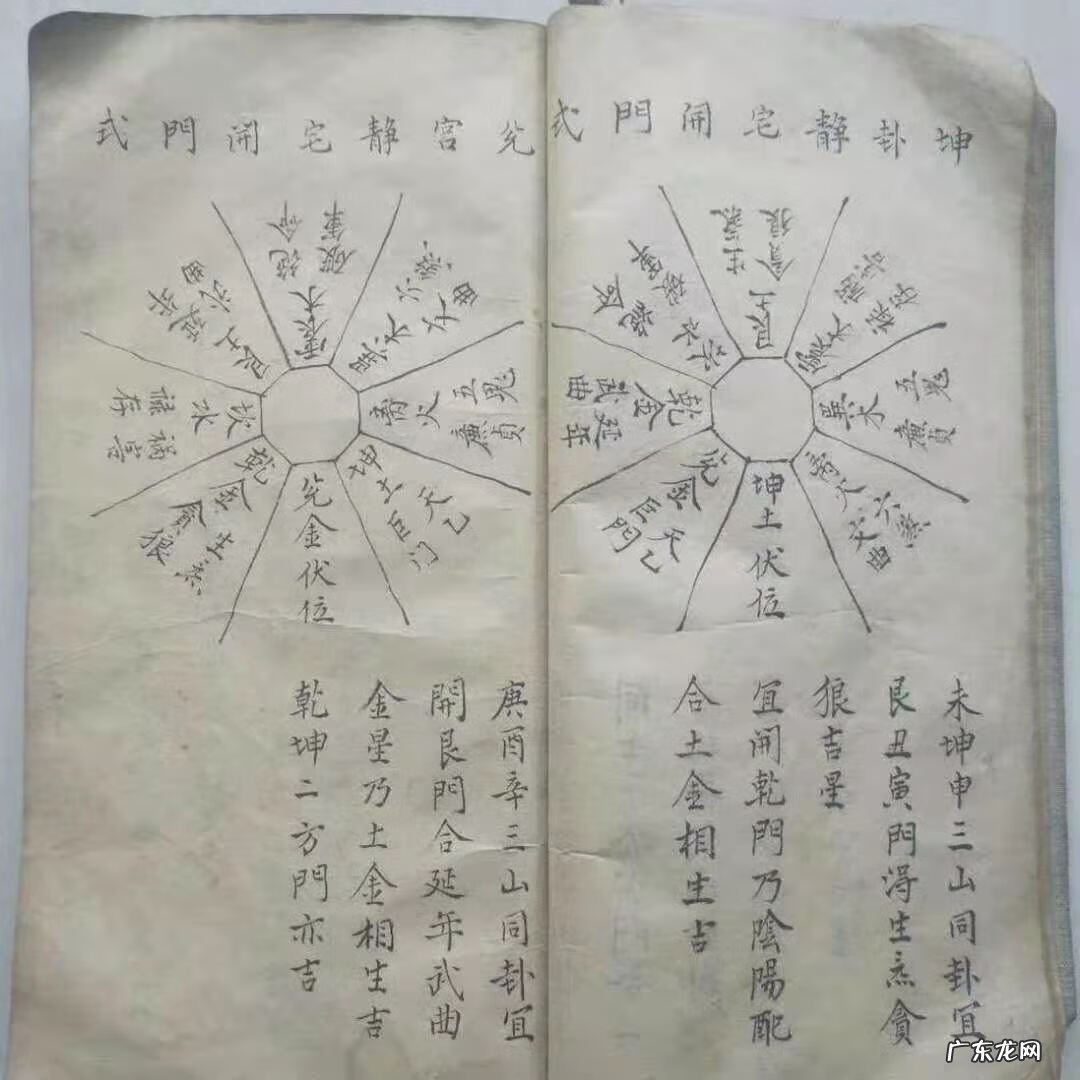 坤卦静宅開門式
艮土
生炁
貪狼
震木
禍害
祿存
巽木
五鬼
廉貞
离火
六煞
文曲
坤土伏位
兊金
天乙
巨門
乾金
延年
武曲
坎水
絶命
破軍
未坤申三山同卦宜
艮丑寅門淂生炁貪
狼吉星
宜開乾門乃陰陽配
合土金相生吉
兊宮静宅開門式
震木
絶命
破軍
巽木
六煞
文曲
离火
五鬼
廉貞
坤土
天乙
巨门
兊金伏位
乾金
生炁
貪狼
坎水
禍害
祿存
艮土
延年
武曲
庚酉辛三山同卦宜
開艮門合延年武曲
金星乃土金相生吉
乾坤二方門亦吉
广东龙网